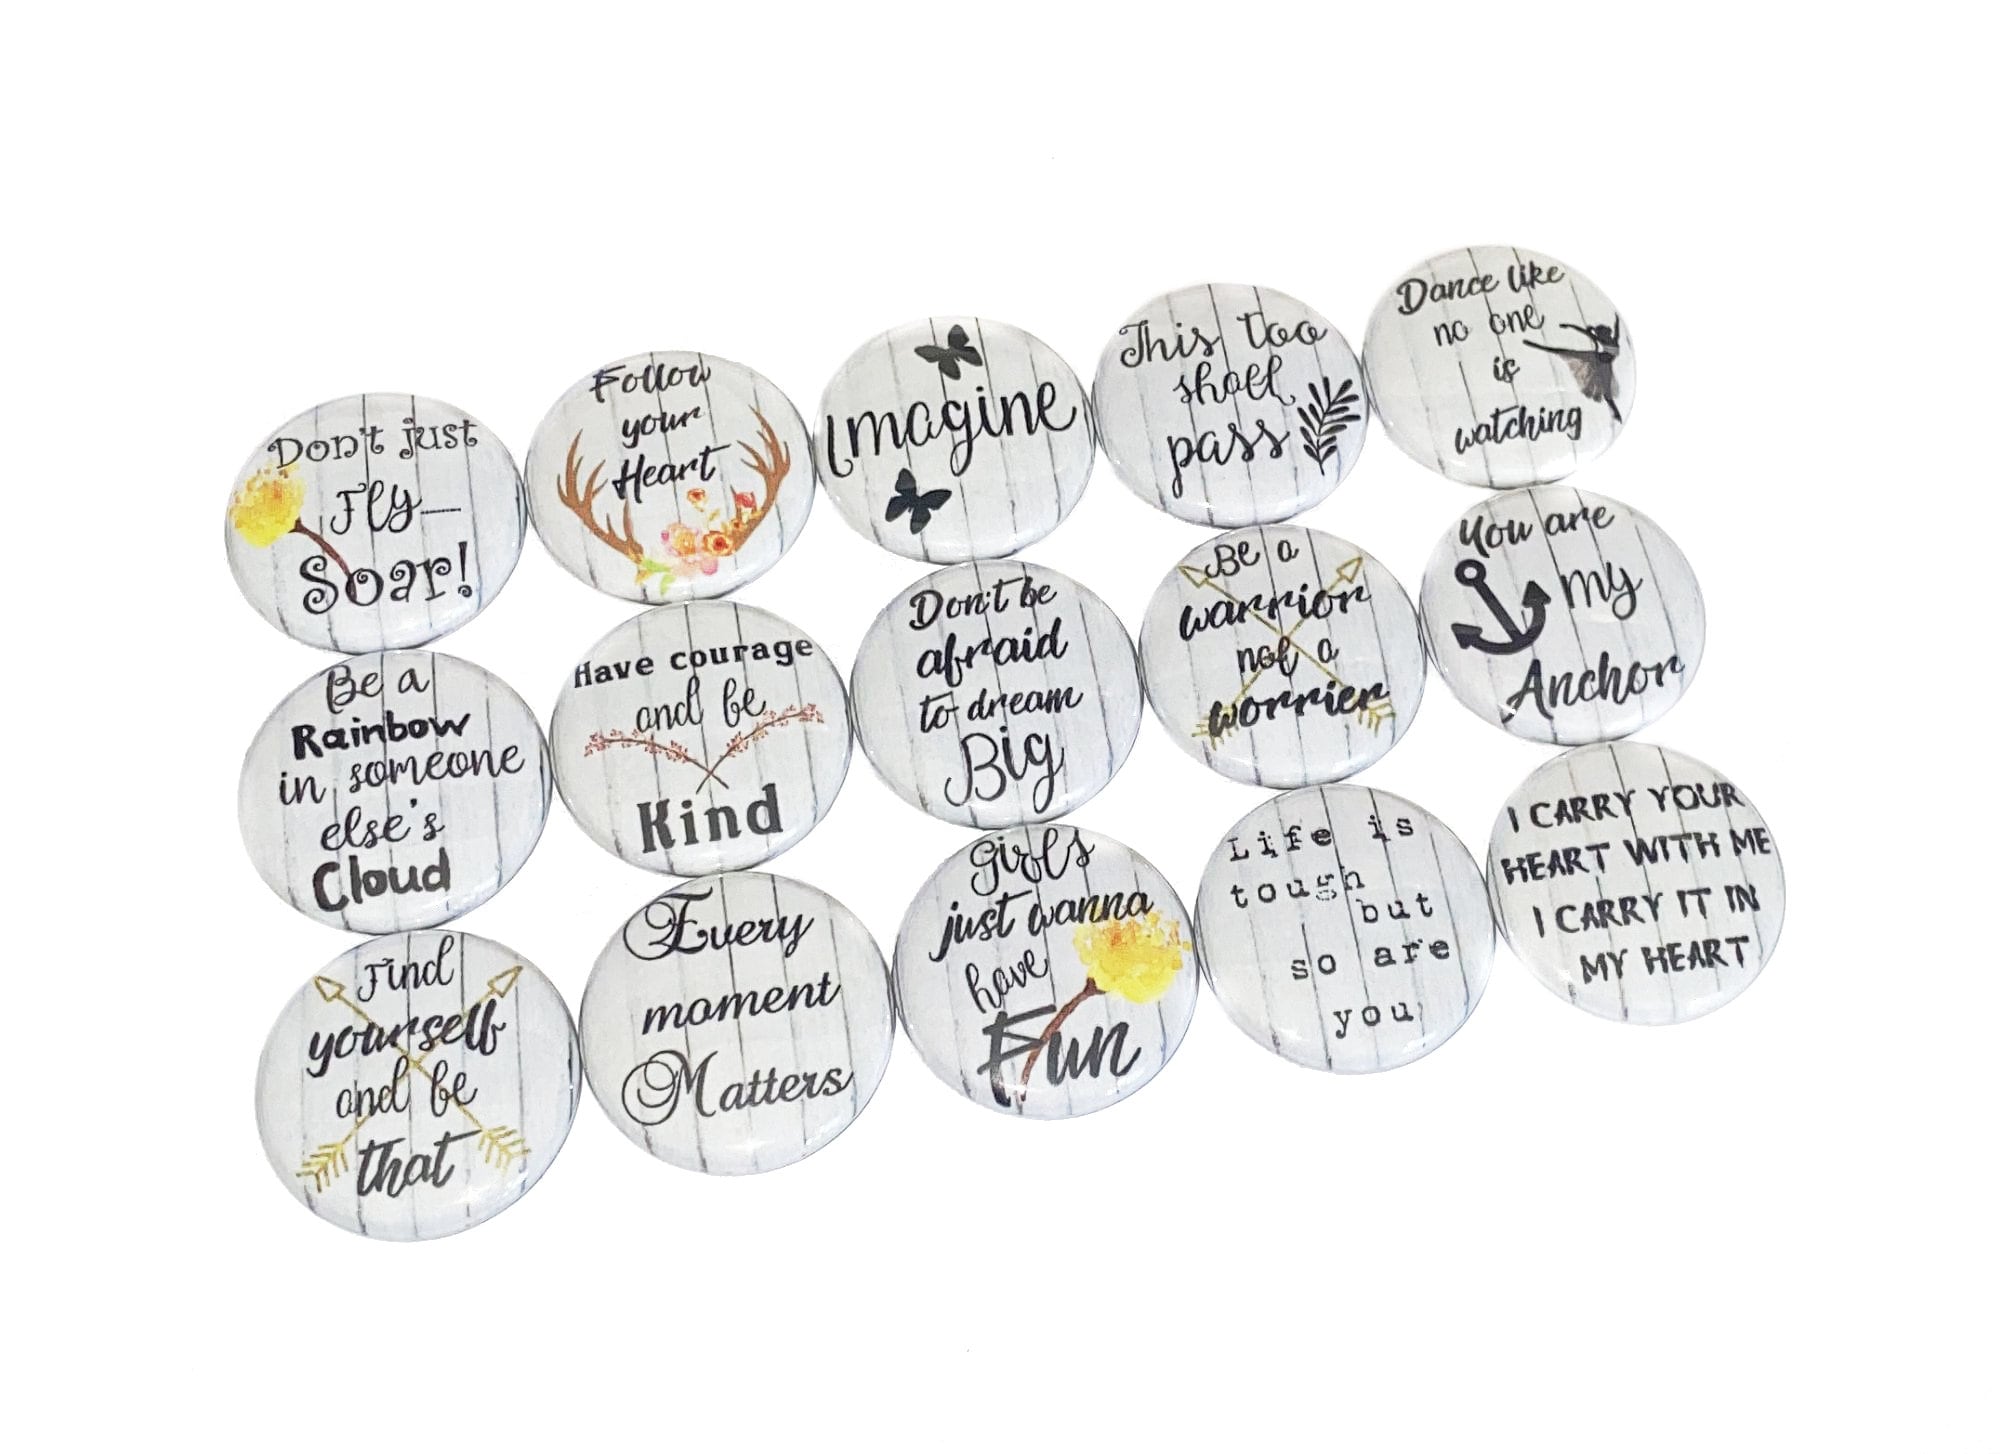 Don't just
Fly—
Soar!
Follow
your
Heart
Imagine
This too
shall
pass
Dance like
no one
is
watching
Be a
Rainbow
in someone
else's
Cloud
Have courage
and be
Kind
Don't be
afraid
to dream
Big
Be a
warrior
not a
worrier
You are
my
Anchor
Find
yourself
and be
that
Every
moment
Matters
Girls
just wanna
have
Fun
Life is
tough
but
so are
you
I CARRY YOUR
HEART WITH ME
I CARRY IT IN
MY HEART